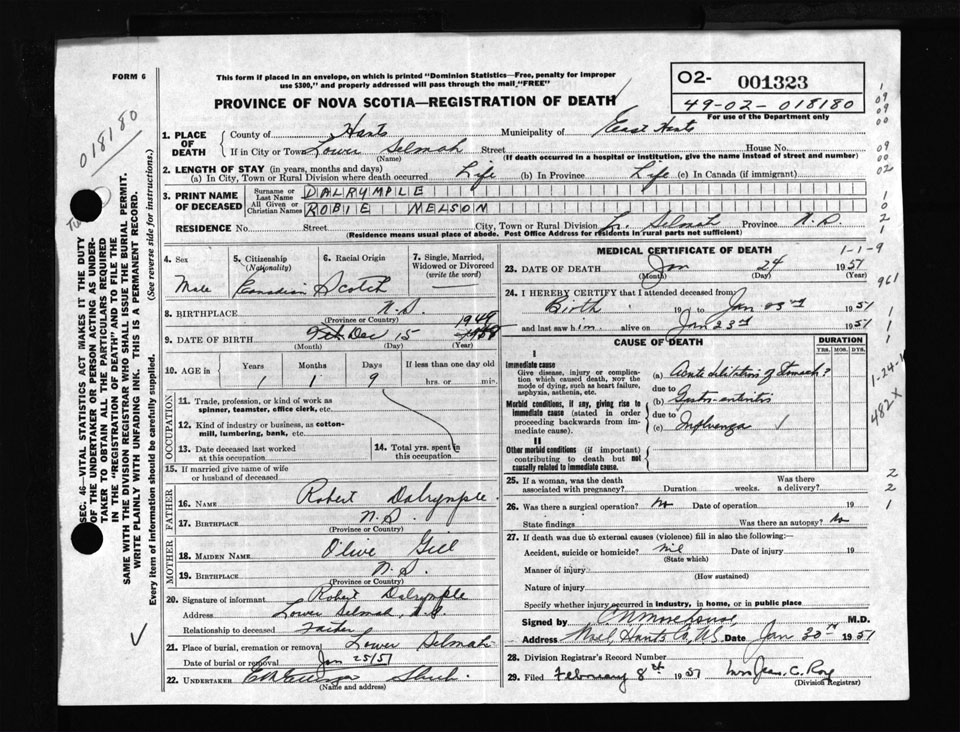 FORM 6
This form if placed in an envelope, on which is printed "Dominion Statistics—Free, penalty for improper
use $300," and properly addressed will pass through the mail "FREE"
PROVINCE OF NOVA SCOTIA—REGISTRATION OF DEATH
02- 001323
49-02-018180
For use of the Department only
018180
1. PLACE OF DEATH
County of Hants Municipality of East Hants
If in City or Town Lower Selmah Street House No.
(Name) (If death occurred in a hospital or institution, give the name instead of street and number)
2. LENGTH OF STAY (in years, months and days)
(a) In City, Town or Rural Division where death occurred Life (b) In Province Life (c) In Canada (if immigrant)
3. PRINT NAME OF DECEASED
Surname or Last Name DALRYMPLE
All Given or Christian Names ROBIE NELSON
RESIDENCE No. Street City, Town or Rural Division Lr. Selmah Province N.S
(Residence means usual place of abode. Post Office Address for residents in rural parts not sufficient)
4. Sex Male
5. Citizenship (Nationality) Canadian
6. Racial Origin Scotch
7. Single, Married, Widowed or Divorced (write the word)
8. BIRTHPLACE N.S.
(Province or Country)
9. DATE OF BIRTH Dec 15 1949
(Month) (Day) (Year)
10. AGE in Years Months Days If less than one day old
1 1 9 hrs. or min.
OCCUPATION
11. Trade, profession, or kind of work as
spinner, teamster, office clerk, etc.
12. Kind of industry or business, as cotton-
mill, lumbering, bank, etc.
13. Date deceased last worked
at this occupation
14. Total yrs. spent in
this occupation
15. If married give name of wife
or husband of deceased
FATHER
16. NAME Robert Dalrymple
17. BIRTHPLACE N.S.
(Province or Country)
MOTHER
18. MAIDEN NAME Olive
19. BIRTHPLACE N.S.
(Province or Country)
20. Signature of informant Robert Dalrymple
Address Lower Selmah, N.S.
Relationship to deceased Father
21. Place of burial, cremation or removal Lower Selmah
Date of burial or removal Jan 25/51
22. UNDERTAKER
(Name and address)
MEDICAL CERTIFICATE OF DEATH
1-1-9
23. DATE OF DEATH Jan 24 1951
(Month) (Day) (Year)
24. I HEREBY CERTIFY that I attended deceased from
Birth 19 to Jan 1951
and last saw him alive on Jan 23rd 1951
CAUSE OF DEATH
DURATION
YRS. MOS. DYS.
I
Immediate cause
Give disease, injury or complica-
tion which caused death, NOT the
mode of dying, such as heart failure,
asphyxia, asthenia, etc.
(a) Acute dilitation of stomach?
due to
Morbid conditions, if any, giving rise to
immediate cause (stated in order
proceeding backwards from im-
mediate cause).
(b) Gastro-enteritis
due to
(c) Influenza
II
Other morbid conditions (if important)
contributing to death but not
causally related to immediate cause.
25. If a woman, was the death
associated with pregnancy? Duration weeks. Was there
a delivery?
26. Was there a surgical operation? No Date of operation 19
State findings Was there an autopsy? No
27. If death was due to external causes (violence) fill in also the following:—
Accident, suicide or homicide? nil Date of injury 19
(State which)
Manner of injury
(How sustained)
Nature of injury
Specify whether injury occurred in industry, in home, or in public place
Signed by M.D.
Address Noel, Hants Co, N.S. Date Jan 30th 1951
28. Division Registrar's Record Number
29. Filed February 8th 1951 Mrs C. Roy
(Division Registrar)
SEC. 46—VITAL STATISTICS ACT MAKES IT THE DUTY
OF THE UNDERTAKER OR PERSON ACTING AS UNDER-
TAKER TO OBTAIN ALL THE PARTICULARS REQUIRED
IN THE "REGISTRATION OF DEATH" AND TO FILE THE
SAME WITH THE DIVISION REGISTRAR WHO SHALL ISSUE THE BURIAL PERMIT.
WRITE PLAINLY WITH UNFADING INK. THIS IS A PERMANENT RECORD.
Every item of information should be carefully supplied. (See reverse side for instructions.)
961
482x